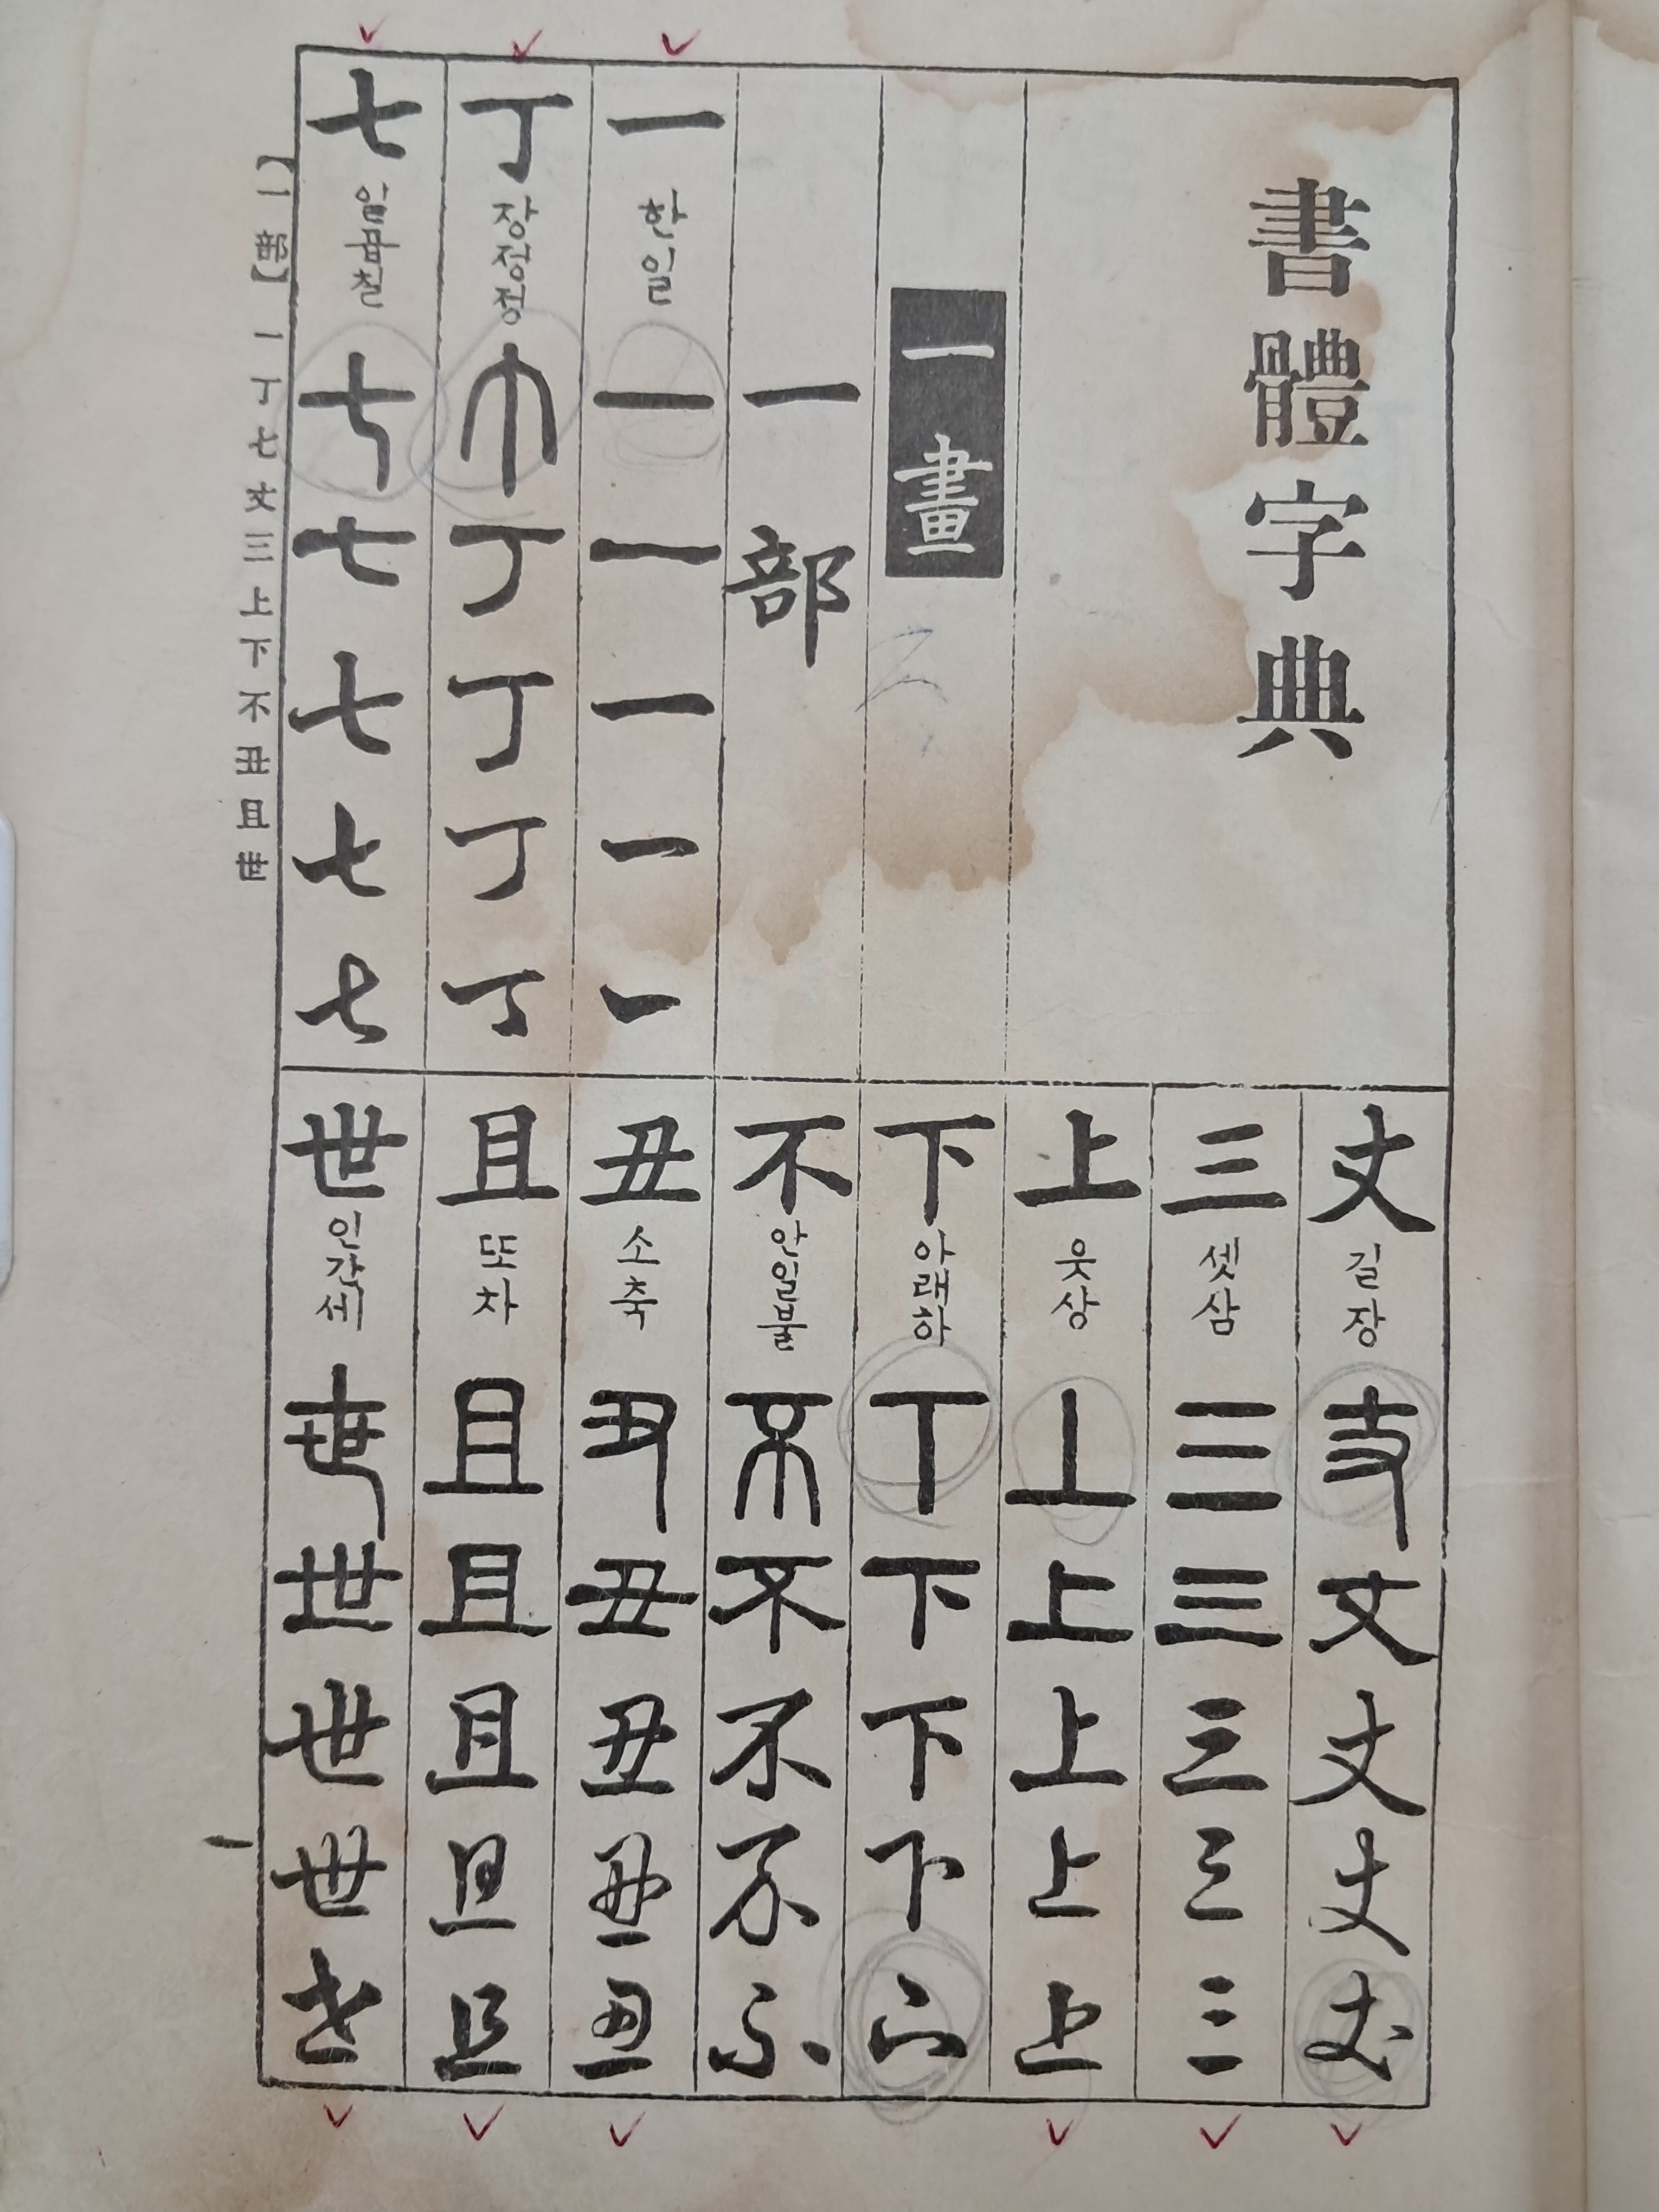 書體字典
一畫
一部
一 한일 一 一 一 一 一
丁 장정정 丁 丁 丁 丁 丁
七 일곱칠 七 七 七 七 七
丈 길장 丈 丈 丈 丈 丈
三 셋삼 三 三 三 三 三
上 웃상 上 上 上 上 上
下 아래하 下 下 下 下 下
不 안일불 不 不 不 不 不
丑 소축 丑 丑 丑 丑 丑
且 또차 且 且 且 且 且
世 인간세 世 世 世 世 世
【一部】一丁七丈三上下不丑且世
一